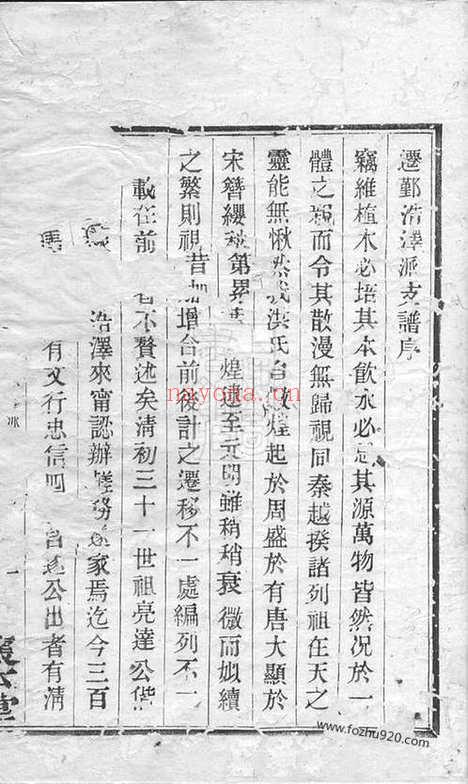 遷鄞浩澤派支譜序
竊維植木必培其本飲水必 其源萬物皆然況於一
體之 而令其散漫無歸視同秦越揆諸列祖在天之
靈能無愀然 我洪氏自敦煌起於周盛於有唐大顯於
宋簪纓 第累 煌 遺至元明雖稍稍衰微而姒續
之繁則視昔 增合前後計之遷移不一處編列不一
載在前 不贅述矣清初三十一世祖亮達公偕
浩澤來甯認辦 務 家焉迄今三百
馬 有文行忠信四 昌達公出者有淸
派
一
堂
nayona.com
www.fozhu920.com